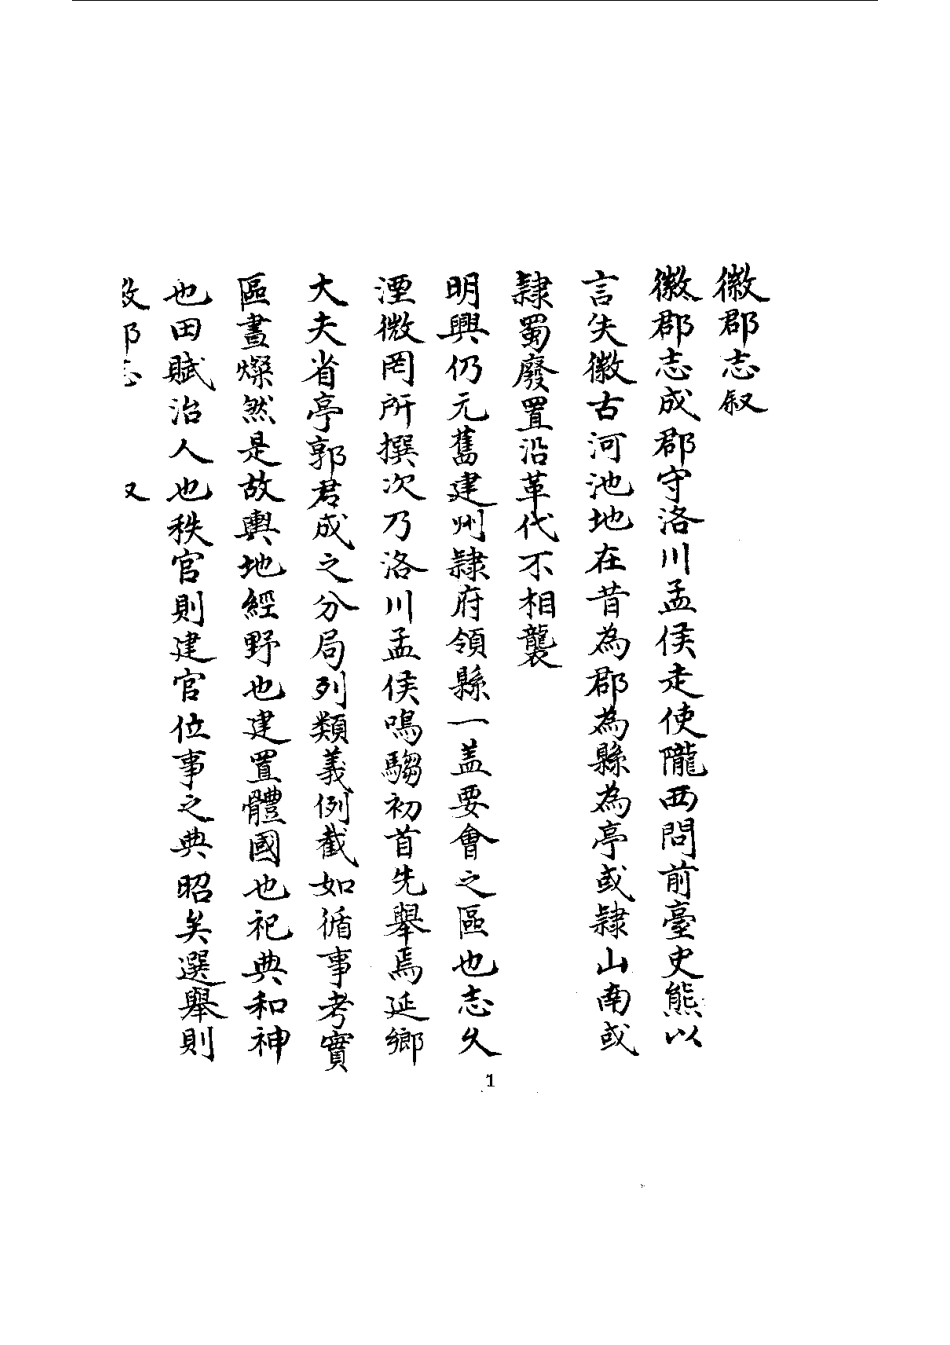 徽郡志叙
徽郡志成郡守洛川孟侯走使隴西問前臺史熊以
言矢徽古河池地在昔為郡為縣為亭或隸山南或
隸蜀廢置沿革代不相襲
明興仍元舊建州隸府領縣一盖要會之區也志久
湮微罔所撰次乃洛川孟侯鳴騶初首先舉焉延鄉
大夫省亭郭君成之分局列類義例截如循事考實
區畫燦然是故輿地經野也建置體國也祀典和神
也田賦治人也秩官則建官位事之典昭矣選舉則
1